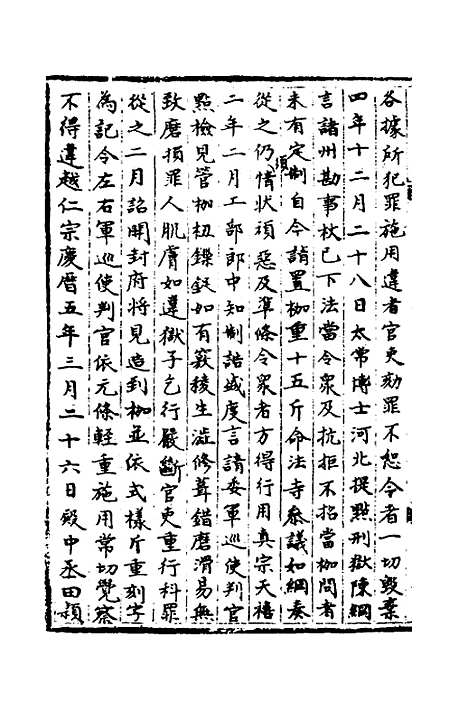 各據所犯罪施用違者官吏劾罪不恕令者一切毀棄
四年十二月二十八日太常博士河北提點刑獄陳綱
言諸州勘事杖已下法當令衆及抗拒不招當枷問者
未有定制自今請置枷重十五斤命法寺叅議如綱奏
從之仍須情狀頑惡及準條令衆者方得行用真宗天禧
二年二月工部郎中知制誥盛度言請委軍巡使判官
點檢見管枷杻鏁錠如有竅稜生澁修葺錯磨滑易無
致磨損罪人肌膚如違獄子乞行嚴斷官吏重行科罪
從之二月詔開封府將見造到枷並依式樣斤重刻字
為記令左右軍巡使判官依元條輕重施用常切覺察
不得違越仁宗慶曆五年三月二十六日殿中丞田頴